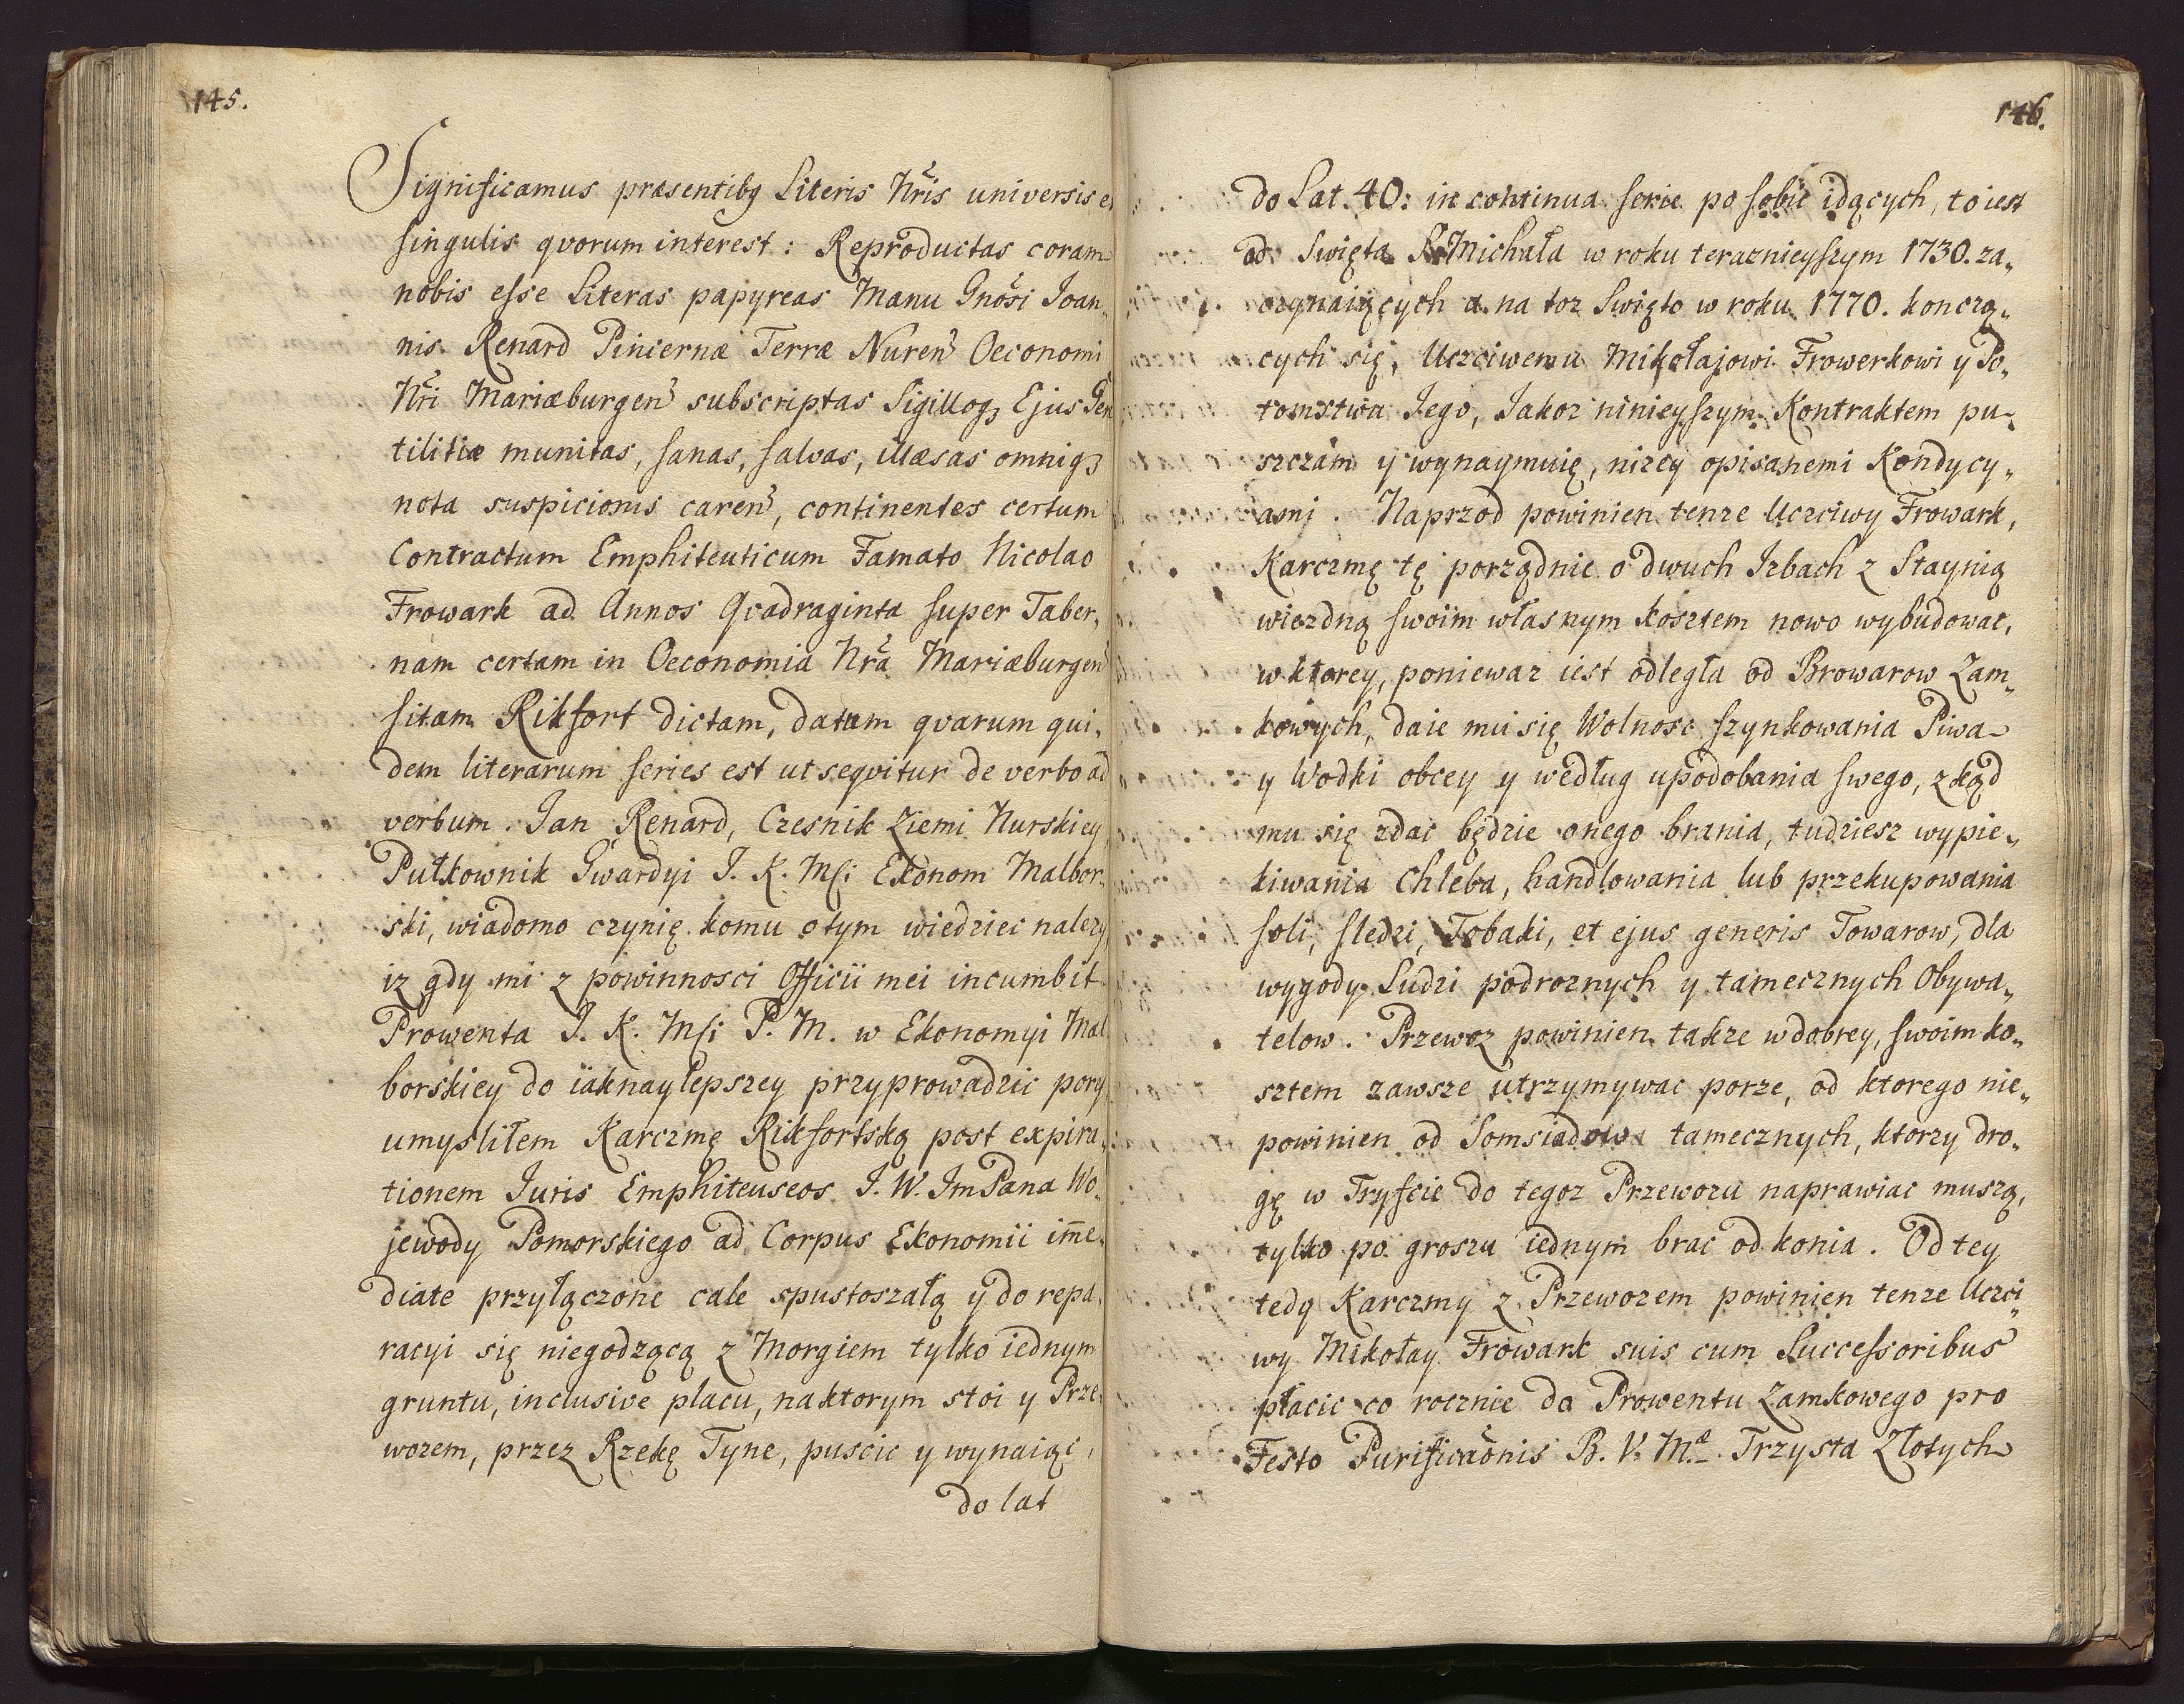 145.
Significamus præsentibq Literis Nr̃is universis et
singulis qvorum interest: Reproductas coram
nobis esse Literas papyreas Manu Gnõsi Joan„
nis Renard Pincernæ Terræ Nuren̄ Oeconomi
Nr̃i Mariæburgen̄ subscriptas Sigilloqꝫ Ejus Gen
tilitiæ munitas, sanas, salvas, illæsas omniqꝫ
nota suspicionis caren̄, continentes certum
Contractum Emphiteuticum Famato Nicolao
Frowark ad Annos Qvadraginta super Taber„
nam certam in Oeconomia Nr̃a Mariæburgen̄
sitam Rikfort dictam, datum qvarum qui„
dem literarum series est ut seqvitur de verbo ad
verbum. Jan Renard, Czesnik Ziemi Nurskiey
Pułkownik Gwardyi J. K. Mſi Ekonom Malbor„
ski, wiadomo czynię komu o tym wiedziec nalezy,
iz gdy mi z powinnosci Officii mei incumbit
Prowenta J. K. Mſi P. M. w Ekonomyi Mal„
borskiey do iaknaylepszey przyprowadzic pory
umysliłem Karczmę Rikfortską post expira„
tionem Juris Emphiteuseos J. W. Jm Pana Wo„
jewody Pomorskiego ad Corpus Ekonomii im̄e„
diate przyłączone cale spustoszałą y do repa„
racyi się niegodzącą z Morgiem tylko iednym
gruntu, inclusive placu, na ktorym stoi y Prze„
wozem, przez Rzekę Tyne, puscic y wynaiąc,
do lat
146.
do Lat. 40: in continua serie po sobie idących, to iest
od Swięta S. Michała w roku teraznieyszym 1730. za„
czynaiących a na toz Swięto w roku 1770. konczą„
cych się, Uczciwemu Mikołajowi Frowerkowi y Po„
tomstwu Jego, Jakoz ninieyszym Kontraktem pu„
szczam y wynaymuię, nizey opisanemi Kondycy„
ami. Naprzod powinien tenze Uczciwy Frowark,
Karczmę tę porządnie o dwuch Izbach z Staynią
wiezdną swoim własnym kosztem nowo wybudowac,
w ktorey, poniewaz iest odległa od Browarow Zam„
kowych, daie mu się Wolnosc szynkowania Piwa
y Wodki obcey y według upodobania swego, zkąd
mu się zdac będzie onego brania, tudziesz wypie„
kiwania Chleba, handlowania lub przekupowania
soli, sledzi, Tobaki, et ejus generis Towarow, dla
wygody Ludzi podroznych y tamecznych Obywa„
telow. Przewoz powinien takze w dobrey, swoim ko„
sztem zawsze utrzymywac porze, od ktorego nie„
powinien od Somsiadow tamecznych, ktorzy dro„
gę w Tryfcie do tegoz Przewozu naprawiac muszą,
tylko po groszu iednym brac od konia. Od tey
tedy Karczmy z Przewozem powinien tenze Uczci„
wy Mikołay Frowark suis cum Successoribus
płacic co rocznie do Prowentu Zamkowego pro
Festo Purificaõnis B. V. M.æ Trzysta Złotych